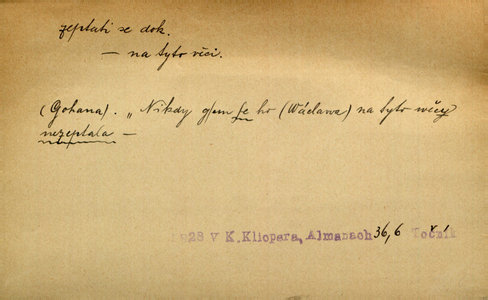 zeptati se dok.
— na tyto věci.
(Gohana). „Nikdy gsem se ho (Wáclawa) na tyto wěcy
nezeptala —
1828 V K. Klicpera, Almanach 36,6 Roční